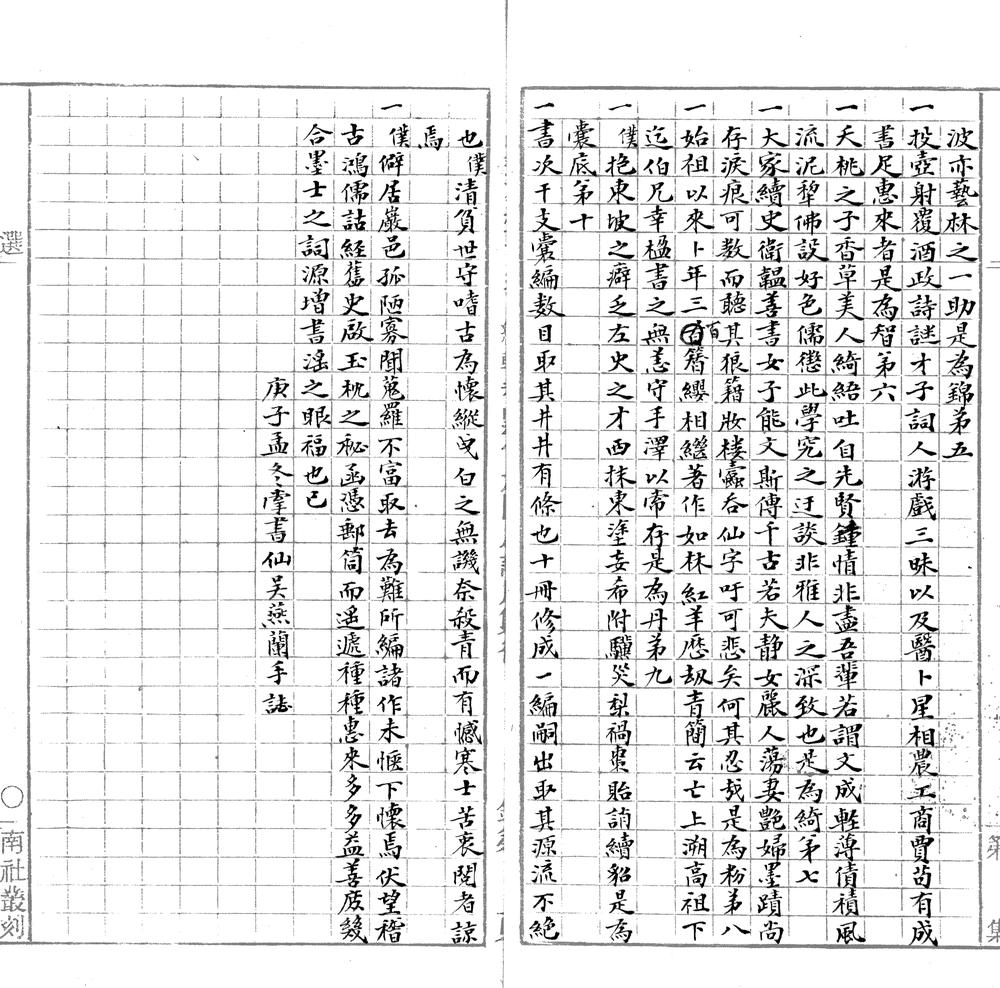 波亦藝林之一助是為錦第五
一投壺射覆酒政詩謎才子詞人游戲三昧以及醫卜星相農工商賈苟有成
書足惠來者是為智第六
一夭桃之子香草美人綺語吐自先賢鍾情非盡吾輩若謂文成輕薄債積風
流泥犂佛設好色儒懲此學究之迂談非雅人之深致也是為綺第七
一大家續史衛韞善書女子能文斯傳千古若夫靜女麗人蕩妻艷婦墨蹟尚
存淚痕可數而聽其狼籍妝樓蠹吞仙字吁可悲矣何其忍哉是為粉第八
一始祖以來卜年三百簪纓相繼著作如林紅羊歷劫青簡云亡上溯高祖下
迄伯兄幸楹書之無恙守手澤以常存是為丹第九
一僕抱東坡之癖乏左史之才西抹東塗妄希附驥災梨禍棗貽誚續貂是為
囊底第十
一書次干支囊編數目取其井井有條也十冊修成一編嗣出取其源流不絕
也僕清負世守嗜古為懷縱曳白之無譏奈殺青而有憾寒士苦衷閱者諒
焉
一僕僻居巖邑孤陋寡聞蒐羅不富取去為難所編諸作未愜下懷焉伏望稽
古鴻儒詁經舊史啟玉枕之秘函憑郵筒而遥遞種種惠來多多益善庶幾
合墨士之詞源增書淫之眼福也已
庚子孟冬雩書仙吴燕蘭手誌
選
〇
南社叢刻
集